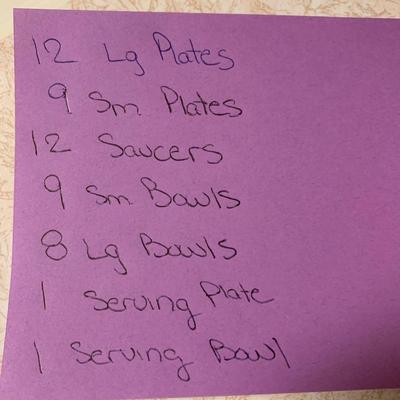 12 Lg Plates
9 Sm Plates
12 Saucers
9 Sm Bowls
8 Lg Bowls
1 Serving Plate
1 Serving Bowl